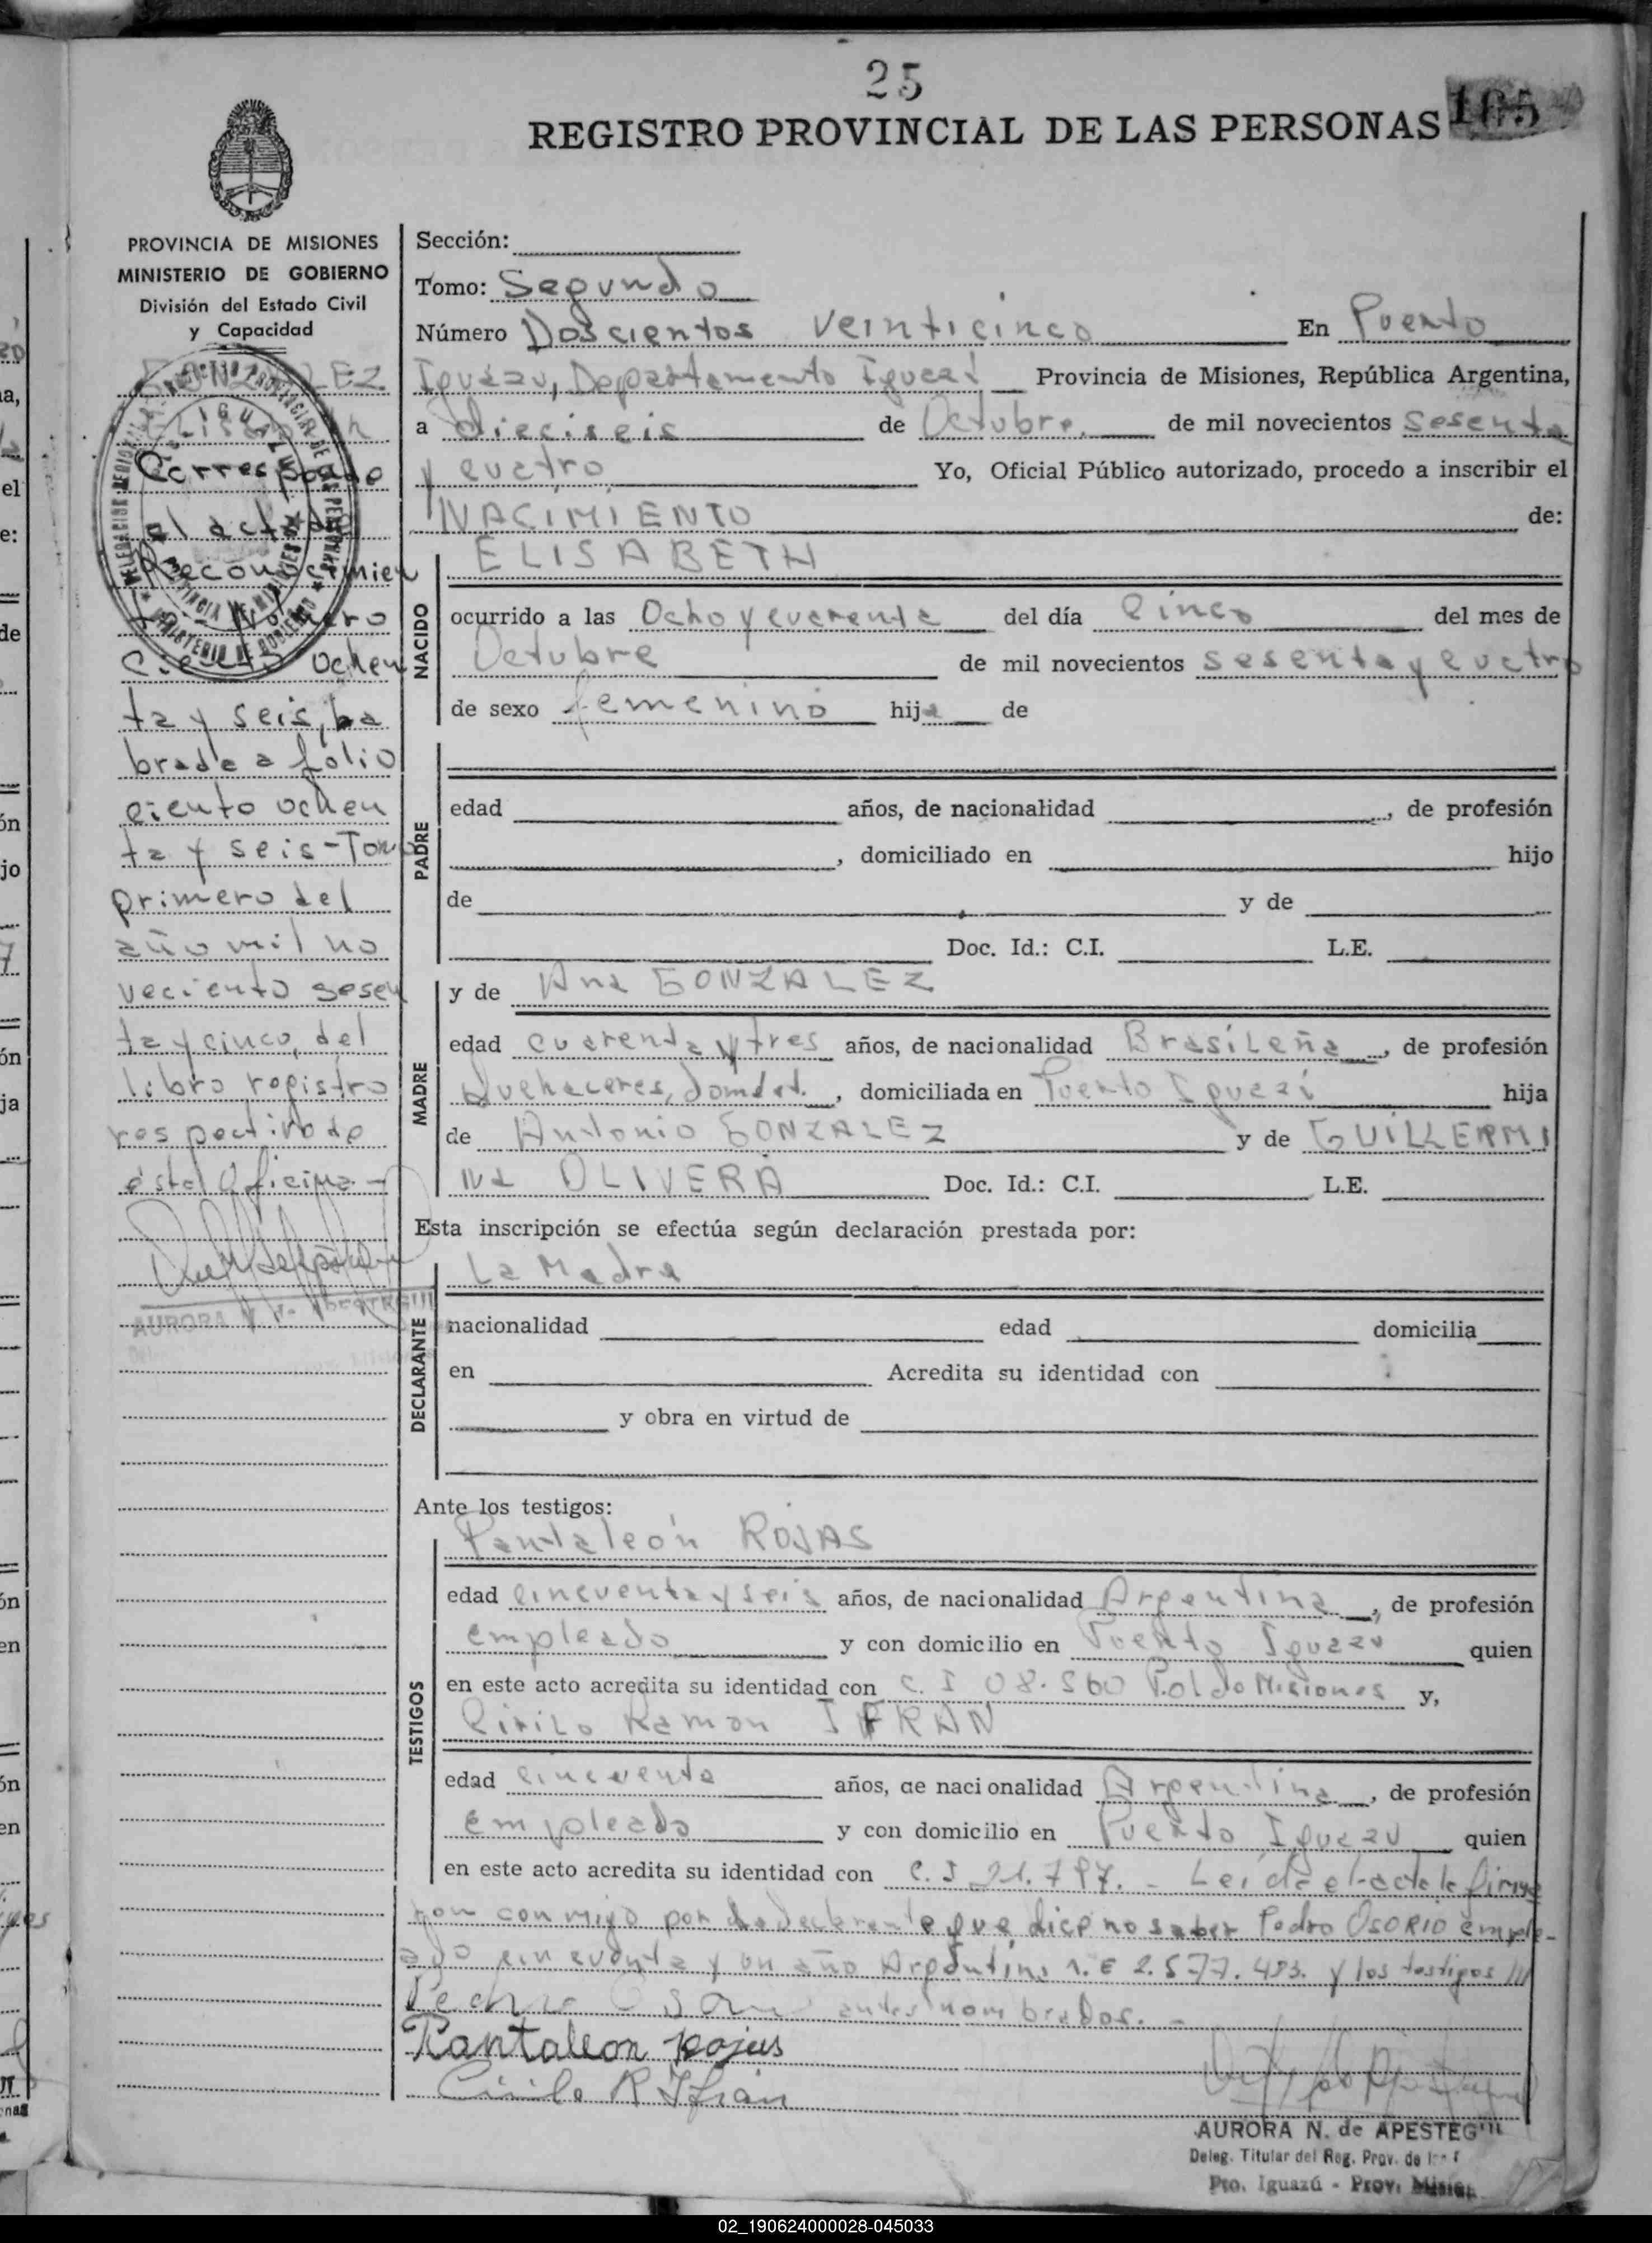 25
REGISTRO PROVINCIAL DE LAS PERSONAS
165
PROVINCIA DE MISIONES
MINISTERIO DE GOBIERNO
División del Estado Civil
y Capacidad
GONZALEZ
Elisabeth
Corresponde
al acta de
Reconocimien
to - Número
Ciento Ochen
ta y seis, la
brada a fólio
ciento ochen
ta y seis - Tomo
primero del
año mil no
veciento sesen
ta y cinco, del
libro registro
respectivo de
ésta Oficina -
AURORA N. de APESTEGUI
Sección:
Tomo: Segundo
Número Doscientos veinticinco En Puerto
Iguazu, Departamento Iguazú Provincia de Misiones, República Argentina,
a dieciseis de Octubre, de mil novecientos sesenta
y cuatro Yo, Oficial Público autorizado, procedo a inscribir el
NACIMIENTO de:
ELISABETH
NACIDO
ocurrido a las Ocho y cuarenta del día Cinco del mes de
Octubre de mil novecientos sesenta y cuatro
de sexo femenino hija de
PADRE
edad años, de nacionalidad , de profesión
, domiciliado en hijo
de y de
Doc. Id.: C.I. L.E.
y de Ana GONZALEZ
MADRE
edad cuarenta y tres años, de nacionalidad Brasileña , de profesión
Quehaceres, domést. , domiciliada en Puerto Iguazú hija
de Antonio GONZALEZ y de GUILLERMI
na OLIVERA Doc. Id.: C.I. L.E.
Esta inscripción se efectúa según declaración prestada por:
La Madre
DECLARANTE
nacionalidad edad domicilia
en Acredita su identidad con
y obra en virtud de
Ante los testigos:
Pantaleón ROJAS
TESTIGOS
edad cincuenta y seis años, de nacionalidad Argentina , de profesión
empleado y con domicilio en Puerto Iguazu quien
en este acto acredita su identidad con C. I 08.560 Pol de Misiones y,
Cirilo Ramon IFRAN
edad cincuenta años, de nacionalidad Argentina , de profesión
empleado y con domicilio en Puerto Iguazu quien
en este acto acredita su identidad con C. I 21.797. - Leida el acta la firma
ron conmigo por la declarante que dice no saber Pedro OSORIO emple-
ado cincuenta y un año Argentino 1. E 2.577.493. y los testigos
Pedro Osorio antes nombrados. -
Pantaleon Rojas
Cirilo R Ifrán
AURORA N. de APESTEGUI
Deleg. Titular del Reg. Prov. de
Pto. Iguazú - Prov. Misio
02_190624000028-045033